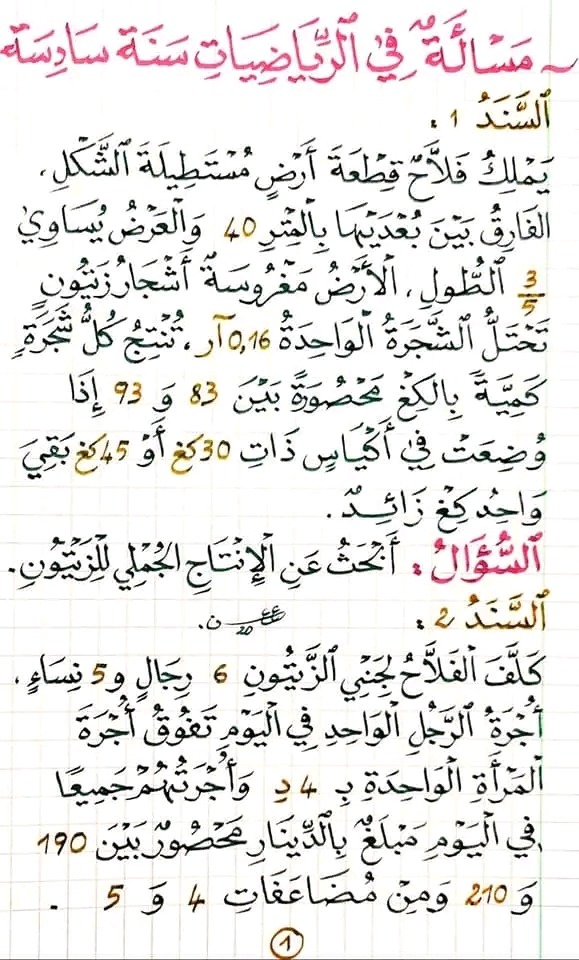 ~ مَسْأَلَةٌ فِي الرِّيَاضِيَاتِ سَنَة سَادِسَة
السَّنَدُ 1 :
يَمْلِكُ فَلَّاحٌ قِطْعَةَ أَرْضٍ مُسْتَطِيلَةَ الشَّكْلِ،
الفَارِقُ بَيْنَ بُعْدَيْهَا بِالْمِتْرِ 40 وَالْعَرْضُ يُسَاوِي
3/5 الطُّولِ، الْأَرْضُ مَغْرُوسَةٌ أَشْجَارُ زَيْتُونٍ
تَحْتَلُّ الشَّجَرَةُ الْوَاحِدَةُ 0,16 آر، تُنْتِجُ كُلُّ شَجَرَةٍ
كَمِيَّةً بِالكِغْ مَحْصُورَةً بَيْنَ 83 وَ 93 إِذَا
وُضِعَتْ فِي أَكْيَاسٍ ذَاتِ 30 كغ أَوْ 45 كغ بَقِيَ
وَاحِد كِغْ زَائِدٌ.
السُّؤَالُ : أَبْحَثُ عَنِ الإِنْتَاجِ الجُمْلِي لِلزَّيْتُونِ.
السَّنَدُ 2 :
كَلَّفَ الْفَلَّاحُ لِجَنْيِ الزَّيْتُونِ 6 رِجَالٍ و 5 نِسَاءٍ،
أُجْرَةُ الرَّجُلِ الْوَاحِدِ فِي الْيَوْمِ تَفُوقُ أُجْرَةَ
الْمَرْأَةِ الْوَاحِدَةِ بِـ 4 د وَأُجْرَتُهُمْ جَمِيعًا
فِي الْيَوْمِ مَبْلَغٌ بِالدِّينَارِ مَحْصُورٌ بَيْنَ 190
وَ 210 وَمِنْ مُضَاعَفَاتِ 4 وَ 5 .
1